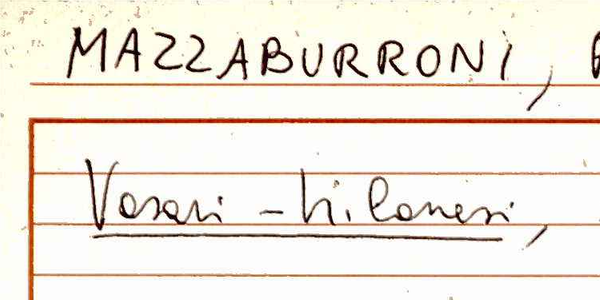 MAZZABURRONI,
Vasari - Milanesi,